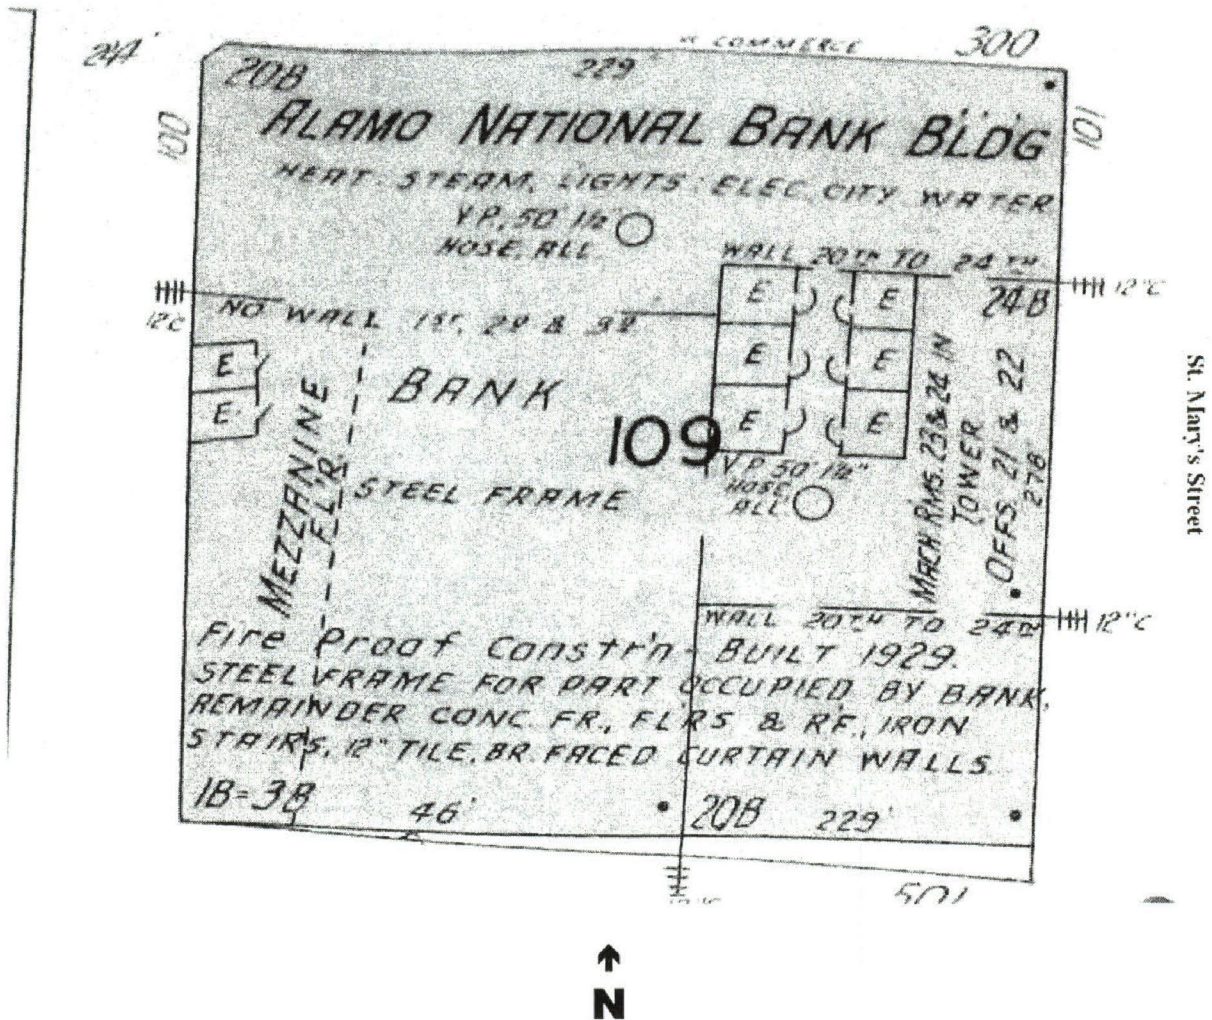 24'
W COMMERCE
300
20B
229'
100
ALAMO NATIONAL BANK BLDG
101
HEAT: STEAM, LIGHTS: ELEC, CITY WATER
V.P., 50' 1½"
HOSE, ALL
WALL 20TH TO 24TH
12"C
12"C
NO WALL 1ST, 2D & 3D
24B
E
E
E
E
E
E
E
E
BANK
109
MEZZANINE
FL'R
STEEL FRAME
V.P. 50' 1½"
HOSE,
ALL
MACH RMS. 23 & 24 IN
TOWER
OFFS. 21 & 22
278'
St. Mary's Street
WALL 20TH TO 24TH
12"C
Fire Proof Constr'n - BUILT 1929.
STEEL FRAME FOR PART OCCUPIED BY BANK,
REMAINDER CONC. FR., FL'RS & RF., IRON
STAIRS, 12" TILE, BR. FACED CURTAIN WALLS.
1B=3B
46'
20B
229'
501
N